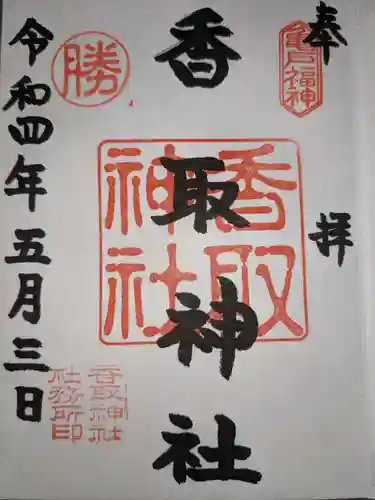 奉拝
亀戸福神
香取神社
香取神社
勝
香取神社
社務所印
令和四年五月三日